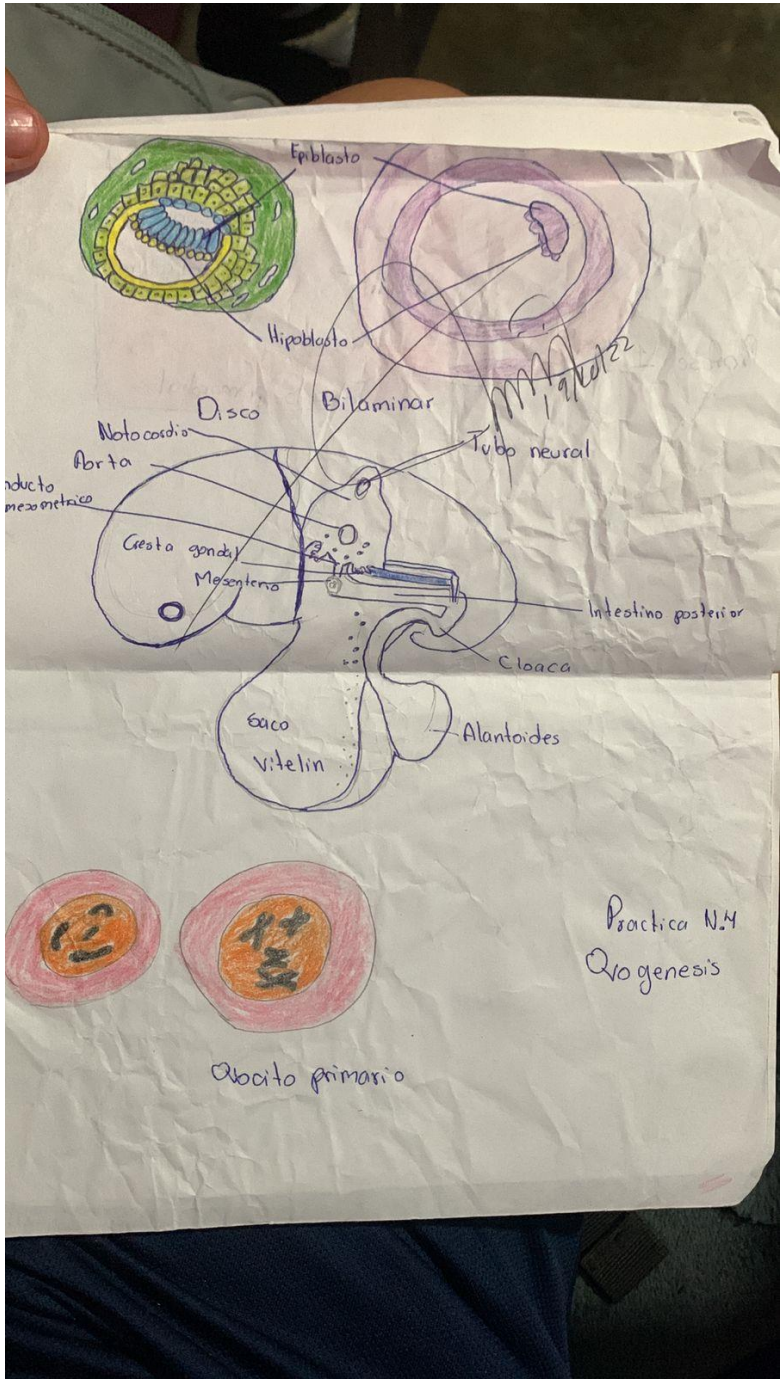 Epiblasto
Hipoblasto
Disco Bilaminar
Notocordio
Tubo neural
Aorta
nducto
mezometrico
Cresta gondal
Mesenterio
Intestino posterior
Cloaca
Saco
Vitelin
Alantoides
Practica N.4
Ovogenesis
Ovocito primario